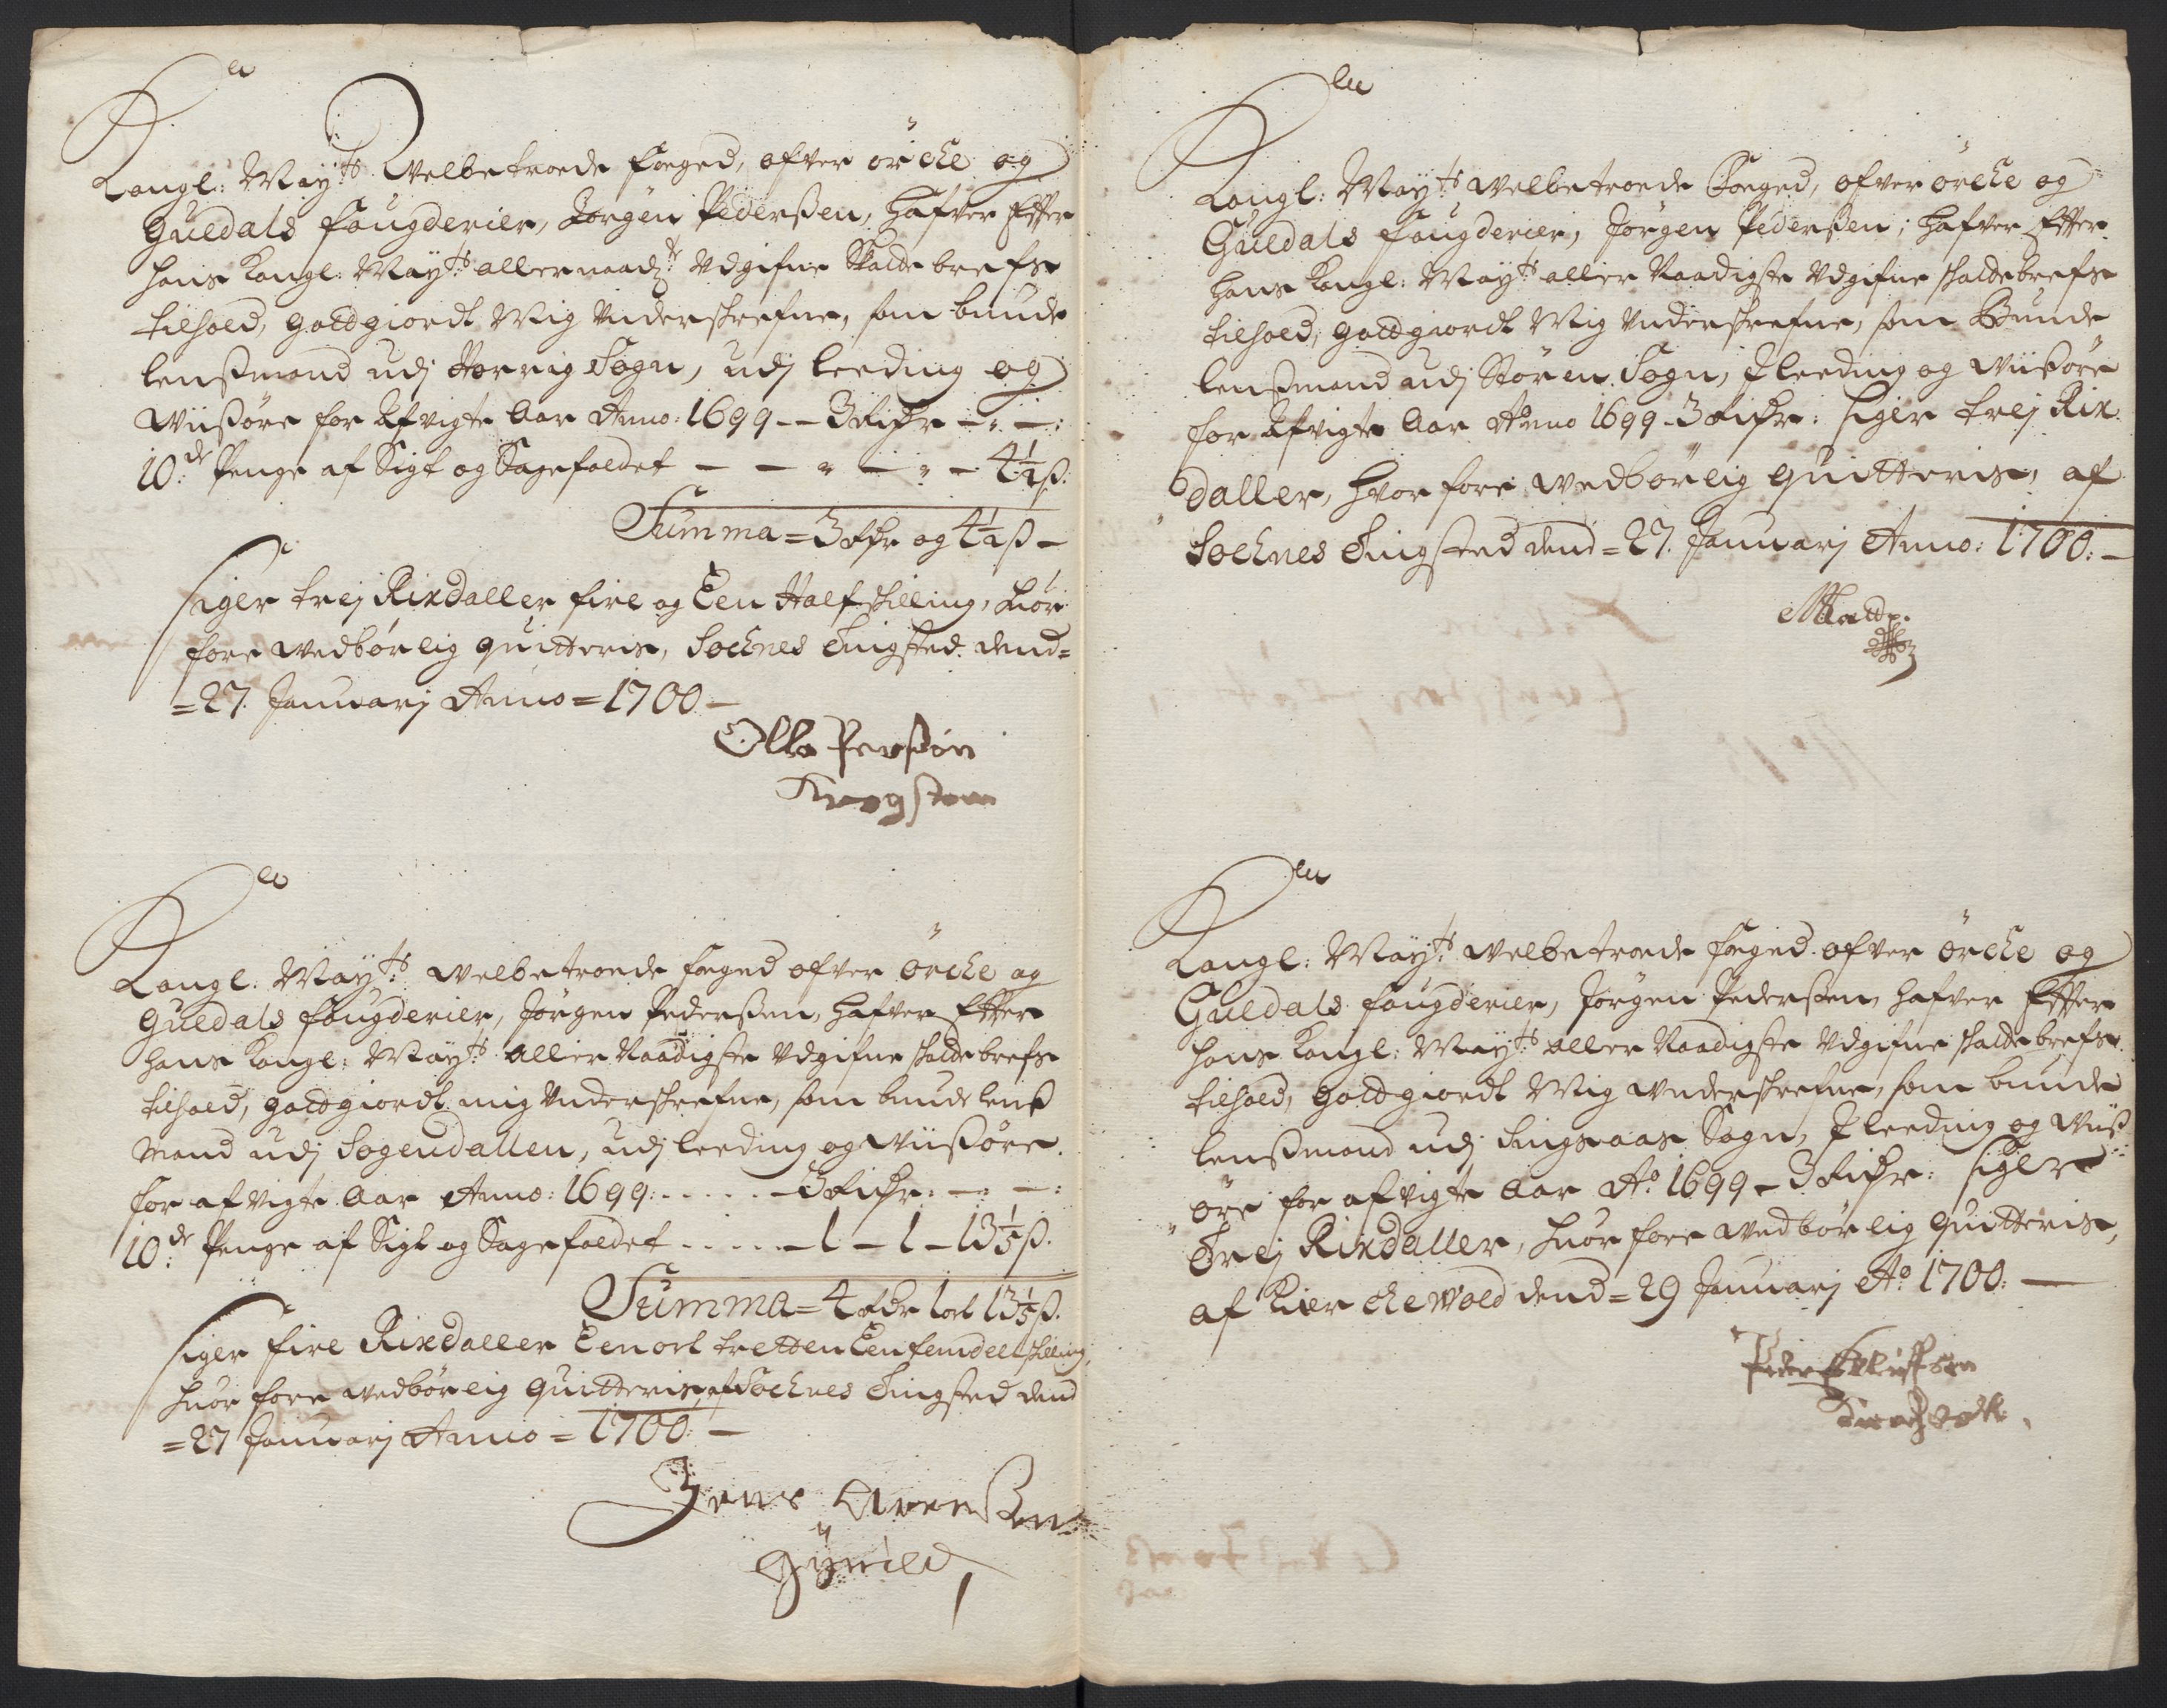 Kongl: Maÿ:ts Welbetroede foged, ofver örche og
Guldals fougderier, Jörgen Pederßen, Hafver Effter
Hans Kongl: Maÿ:ts allernaad:te Udgifne Skatte brefs
tilhold, godtgiordt Mig Underskrefne, som bunde
lenßmand udj Horrig Sogn, udj leeding og
Wiißöre for Afvigte Aar Anno: 1699 -- 3 Rixdr - " -:
10:de Penge af Sigt og Sagefaldet - - " - " - 4½ ß.
Summa = 3 Rdr og 4½ ß -
siger trej Rixdaller fire og Een Half skilling, huor
fore wedbörlig quitteris, Sochnes Tingsted. dend=
=27. Januarj Anno = 1700 -
Olle Perßön
Krogstem
Kongl: Maÿ:ts Welbetroede foged ofver örche og
Guldals fougderier, Jörgen Pederßen, Hafver Effter
Hans Kongl: Maÿ:ts aller Naadigste Udgifne skatte brefs
tilhold, godtgiordt mig Underskrefne, som bunde lenß
Mand udj Sogendallen, udj leeding og Wiißöre.
for afvigte Aar Anno: 1699: - - - - 3 Rixdr: - : - :
10:de Penge af Sigt og Sagefaldet - - - - - 1 - 1 - 13⅕ ß.
Summa = 4 Rdr 1 ort 13⅕ ß.
siger fire Rixdaller Een ort tretten Een femdeel skilling,
huor fore wedbörlig quitteris, af Sochnes Tingsted dend
=27 Januarj Anno = 1700: -
Jens Arenßen
Kongl: Maÿ:ts Welbetroede Foged, ofver örche og
Guldals fougderier, Jörgen Pederßen; Hafver Effter
Hans Kongl: Maÿ:ts aller Naadigste Udgifne skatte brefs
tilhold, godtgiordt Mig Underskrefne, som Bunde
lenßmand udj Stören Sogn, J leeding og Wiißöre
for Afvigte Aar Anno 1699 - 3 Rixdr: siger trej Rix
daller, Hvor fore wedbörlig quitteris, af
Sochnes Tingsted dend = 27. Januarj Anno: 1700: -
Kongl: Maÿ:ts Welbetroede foged ofver örche og
Guldals fougderier, Jörgen Pederßen, Hafver Effter
Hans Kongl: Maÿ:ts aller Naadigste Udgifne skatte brefs
tilhold, godtgiordt Mig Underskrefne, som bunde
lenßmand udj Singsaas Sogn, J leeding og Wiiß
öre for afvigte Aar Ao 1699 - 3 Rixdr: siger
Trej Rixdaller, huor fore wedbörlig quitteris,
af Kierchewold dend = 29 Januarj Ao 1700: -
Peder